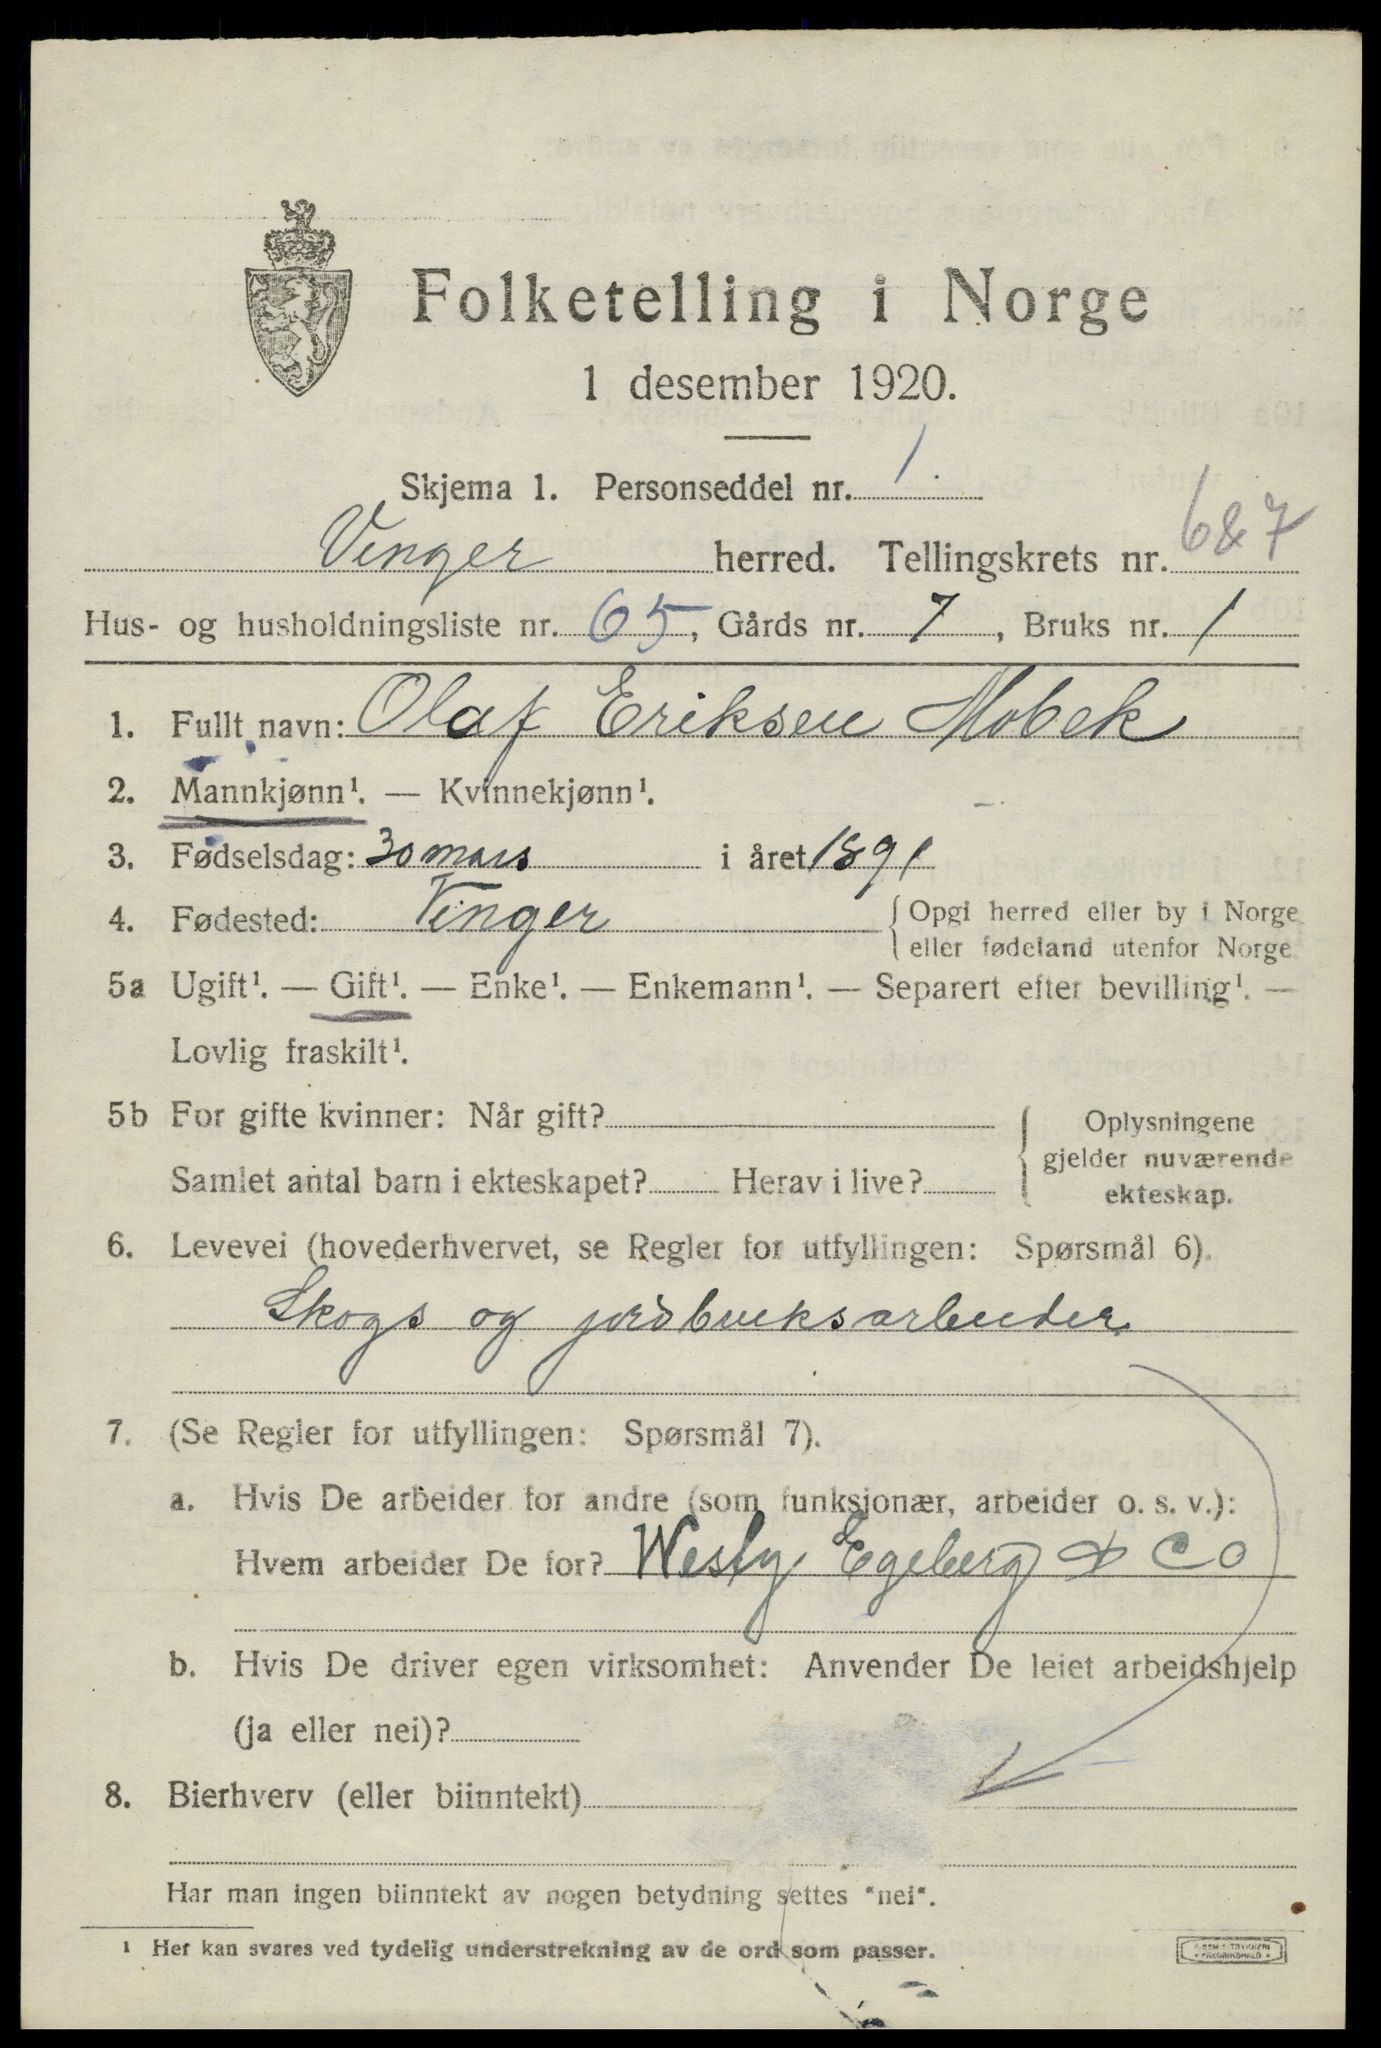 Folketelling i Norge
1 desember 1920.
Skjema 1. Personseddel nr. 1.
Vinger herred. Tellingskrets nr. 6&7
Hus- og husholdningsliste nr. 65, Gårds nr. 7, Bruks nr. 1
1. Fullt navn: Olaf Eriksen Mobek
2. Mannkjønn¹. — Kvinnekjønn¹.
3. Fødselsdag: 30 mars i året 1891
4. Fødested: Vinger { Opgi herred eller by i Norge
eller fødeland utenfor Norge
5a Ugift¹. — Gift¹. — Enke¹. — Enkemann¹. — Separert efter bevilling¹. —
Lovlig fraskilt¹.
5b For gifte kvinner: Når gift? { Oplysningene
gjelder nuværende
Samlet antal barn i ekteskapet? Herav i live? ekteskap.
6. Levevei (hovederhvervet, se Regler for utfyllingen: Spørsmål 6).
Skogs og jordbruksarbeider
7. (Se Regler for utfyllingen: Spørsmål 7).
a. Hvis De arbeider for andre (som funksjonær, arbeider o. s. v.):
Hvem arbeider De for? Westye Egeberg & Co
b. Hvis De driver egen virksomhet: Anvender De leiet arbeidshjelp
(ja eller nei)?
8. Bierhverv (eller biinntekt)
Har man ingen biinntekt av nogen betydning settes "nei".
¹ Her kan svares ved tydelig understrekning av de ord som passer.